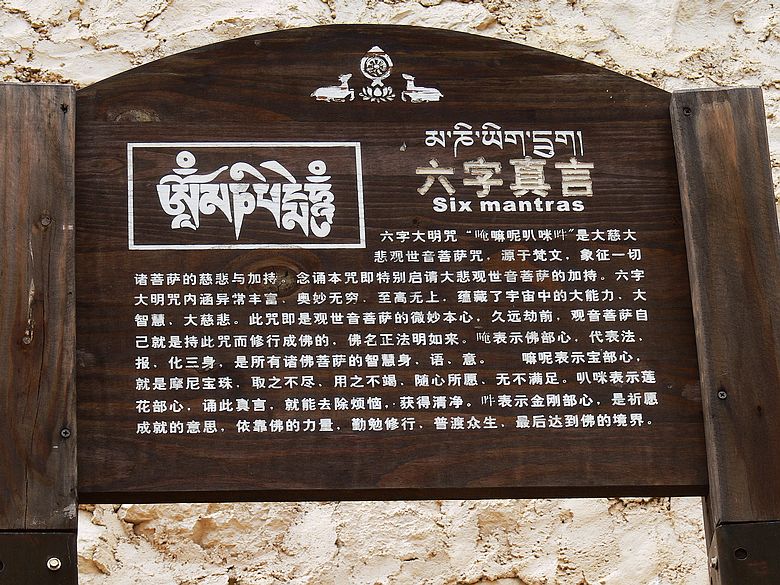 མ་ཎི་ཡིག་དྲུག།
六字真言
Six mantras
六字大明咒“唵嘛呢叭咪吽”是大慈大
悲观世音菩萨咒，源于梵文，象征一切
诸菩萨的慈悲与加持。念诵本咒即特别启请大悲观世音菩萨的加持。六字
大明咒内涵异常丰富、奥妙无穷、至高无上，蕴藏了宇宙中的大能力、大
智慧、大慈悲。此咒即是观世音菩萨的微妙本心，久远劫前，观音菩萨自
己就是持此咒而修行成佛的，佛名正法明如来。唵表示佛部心，代表法、
报、化三身，是所有诸佛菩萨的智慧身、语、意。 嘛呢表示宝部心，
就是摩尼宝珠，取之不尽、用之不竭、随心所愿、无不满足。叭咪表示莲
花部心，诵此真言，就能去除烦恼，获得清净。吽表示金刚部心，是祈愿
成就的意思，依靠佛的力量，勤勉修行、普渡众生、最后达到佛的境界。